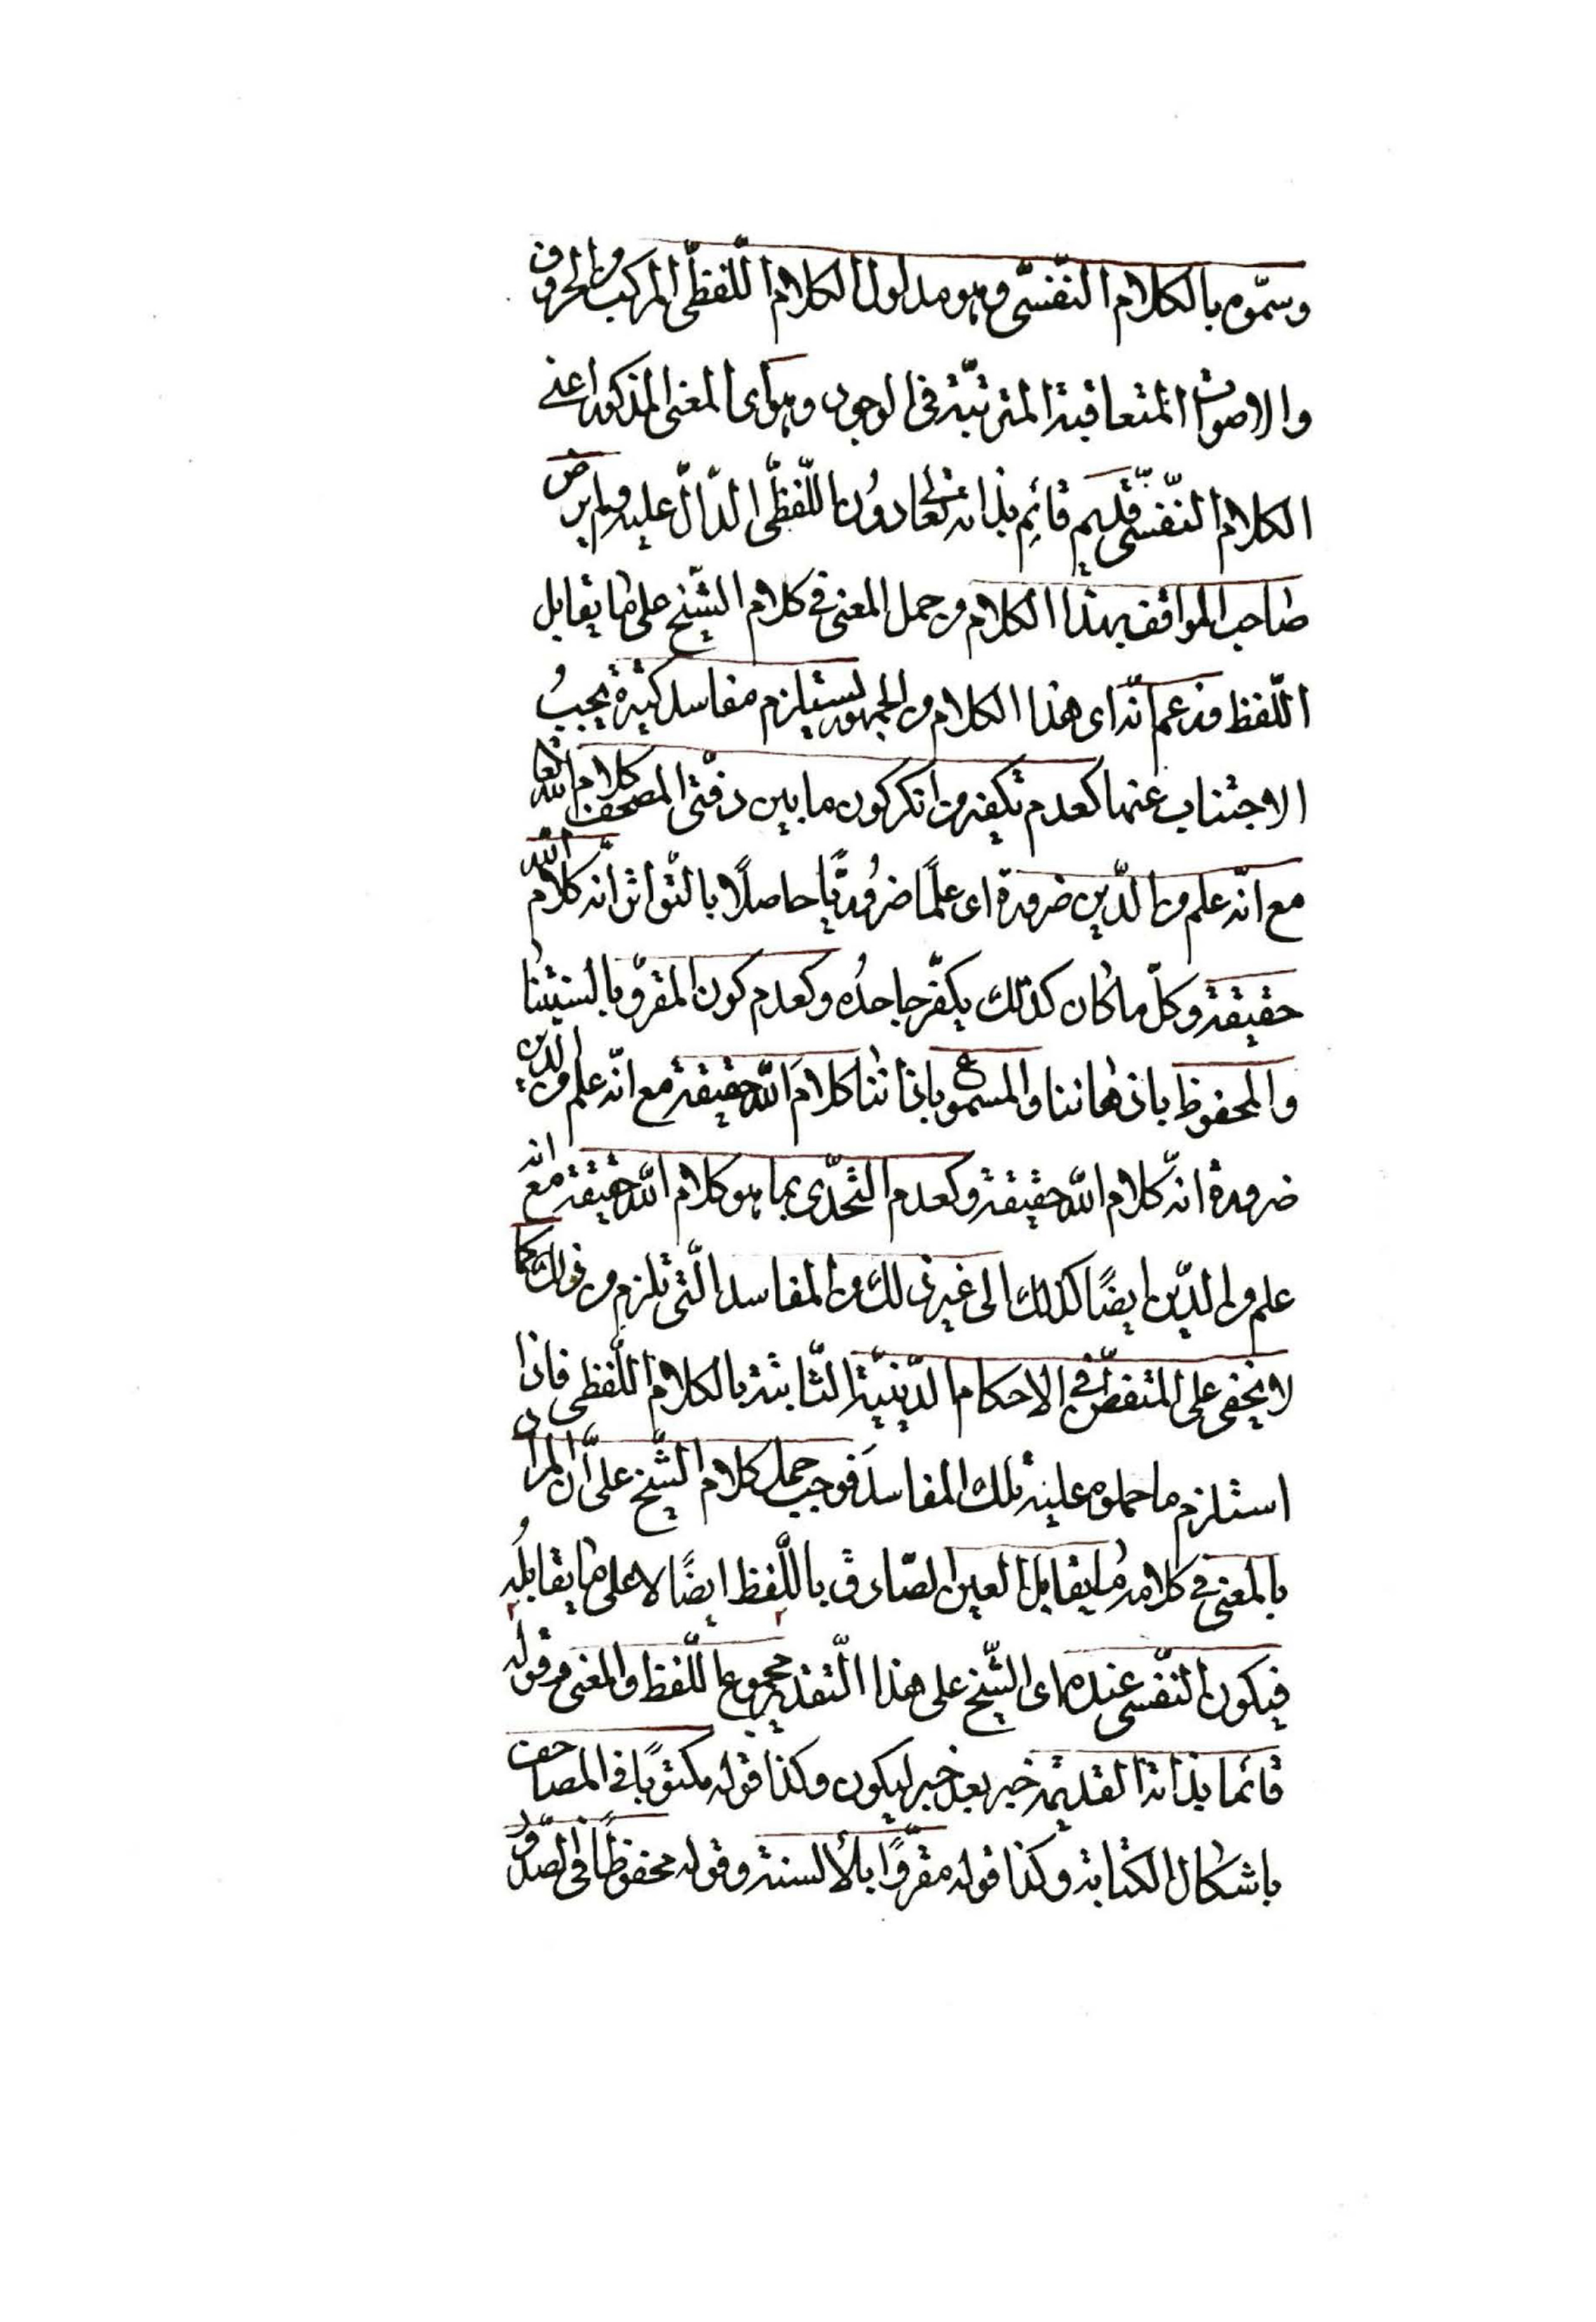 وسمّوه بالكلام النّفسّى وهو مدلول الكلام اللّفظّى المركب من الحروف
والاصوات المتعاقبة المترتبّة فى الوجود وهو اى المغنى المذكور اعنے
الكلام النّفسّى قديم قائم بذاته تعالى دوُن اللّفظّى الدّالّ عليه ولم يرض
صاحب المواقف بهذا الكلام وحمل المعنى فے كلام الشّيخ على ما يقابل
اللّفظ وزعم انّه اى هذا الكلام من الجمهور يستلزم مفاسد كثيرة يجبُ
الاجتناب عنها كعدم تكفير من انكر كون ما بين دفّتى المصحف كلام الله تعالى
مع انّه علم من الدّين ضرورة اى علمًا ضرُوريًّا حاصلًا بالتّواتر انّه كلام الله
حقيقة وكلّ ما كان كذلك يكفّر جاحدُه وكعدم كون المقروّ بالسنتنا
والمحفوظ باذهاننا والمسموع باذاننا كلامَ الله حقيقة مع انّه علم من الدّين
ضرورة انّه كلام الله حقيقة وكعدم التّحدّى بما هو كلام الله حقيقة مع انّه
علم من الدّين ايضًا كذلك الى غير ذلك من المفاسد الّتى تلزم من ذلك كما
لا يخفى على المتفطّن فے الاحكام الدّينيّة الثّابتة بالكلام اللّفظى فاذا
استلزم ما حملوه عليه تلك المفاسدَ فوجب حمل كلام الشّيخ على انّ المراد
بالمغنى فے كلامه ما يقابل العين الصّادق باللّفظ ايضًا لا على ما يقابلُه
فيكون النّفسى عنده اى الشّيخ على هذا التّقدير مجموع اللّفظ والمغنى وقوله
قائما بذاته القديمة خبر بعد خبر ليكون وكذا قوله مكتوبًا فى المصاحف
باشكال الكتابة وكذا قوله مقروًّا بالألسنة وقوله محفوظًا فى الصّدور